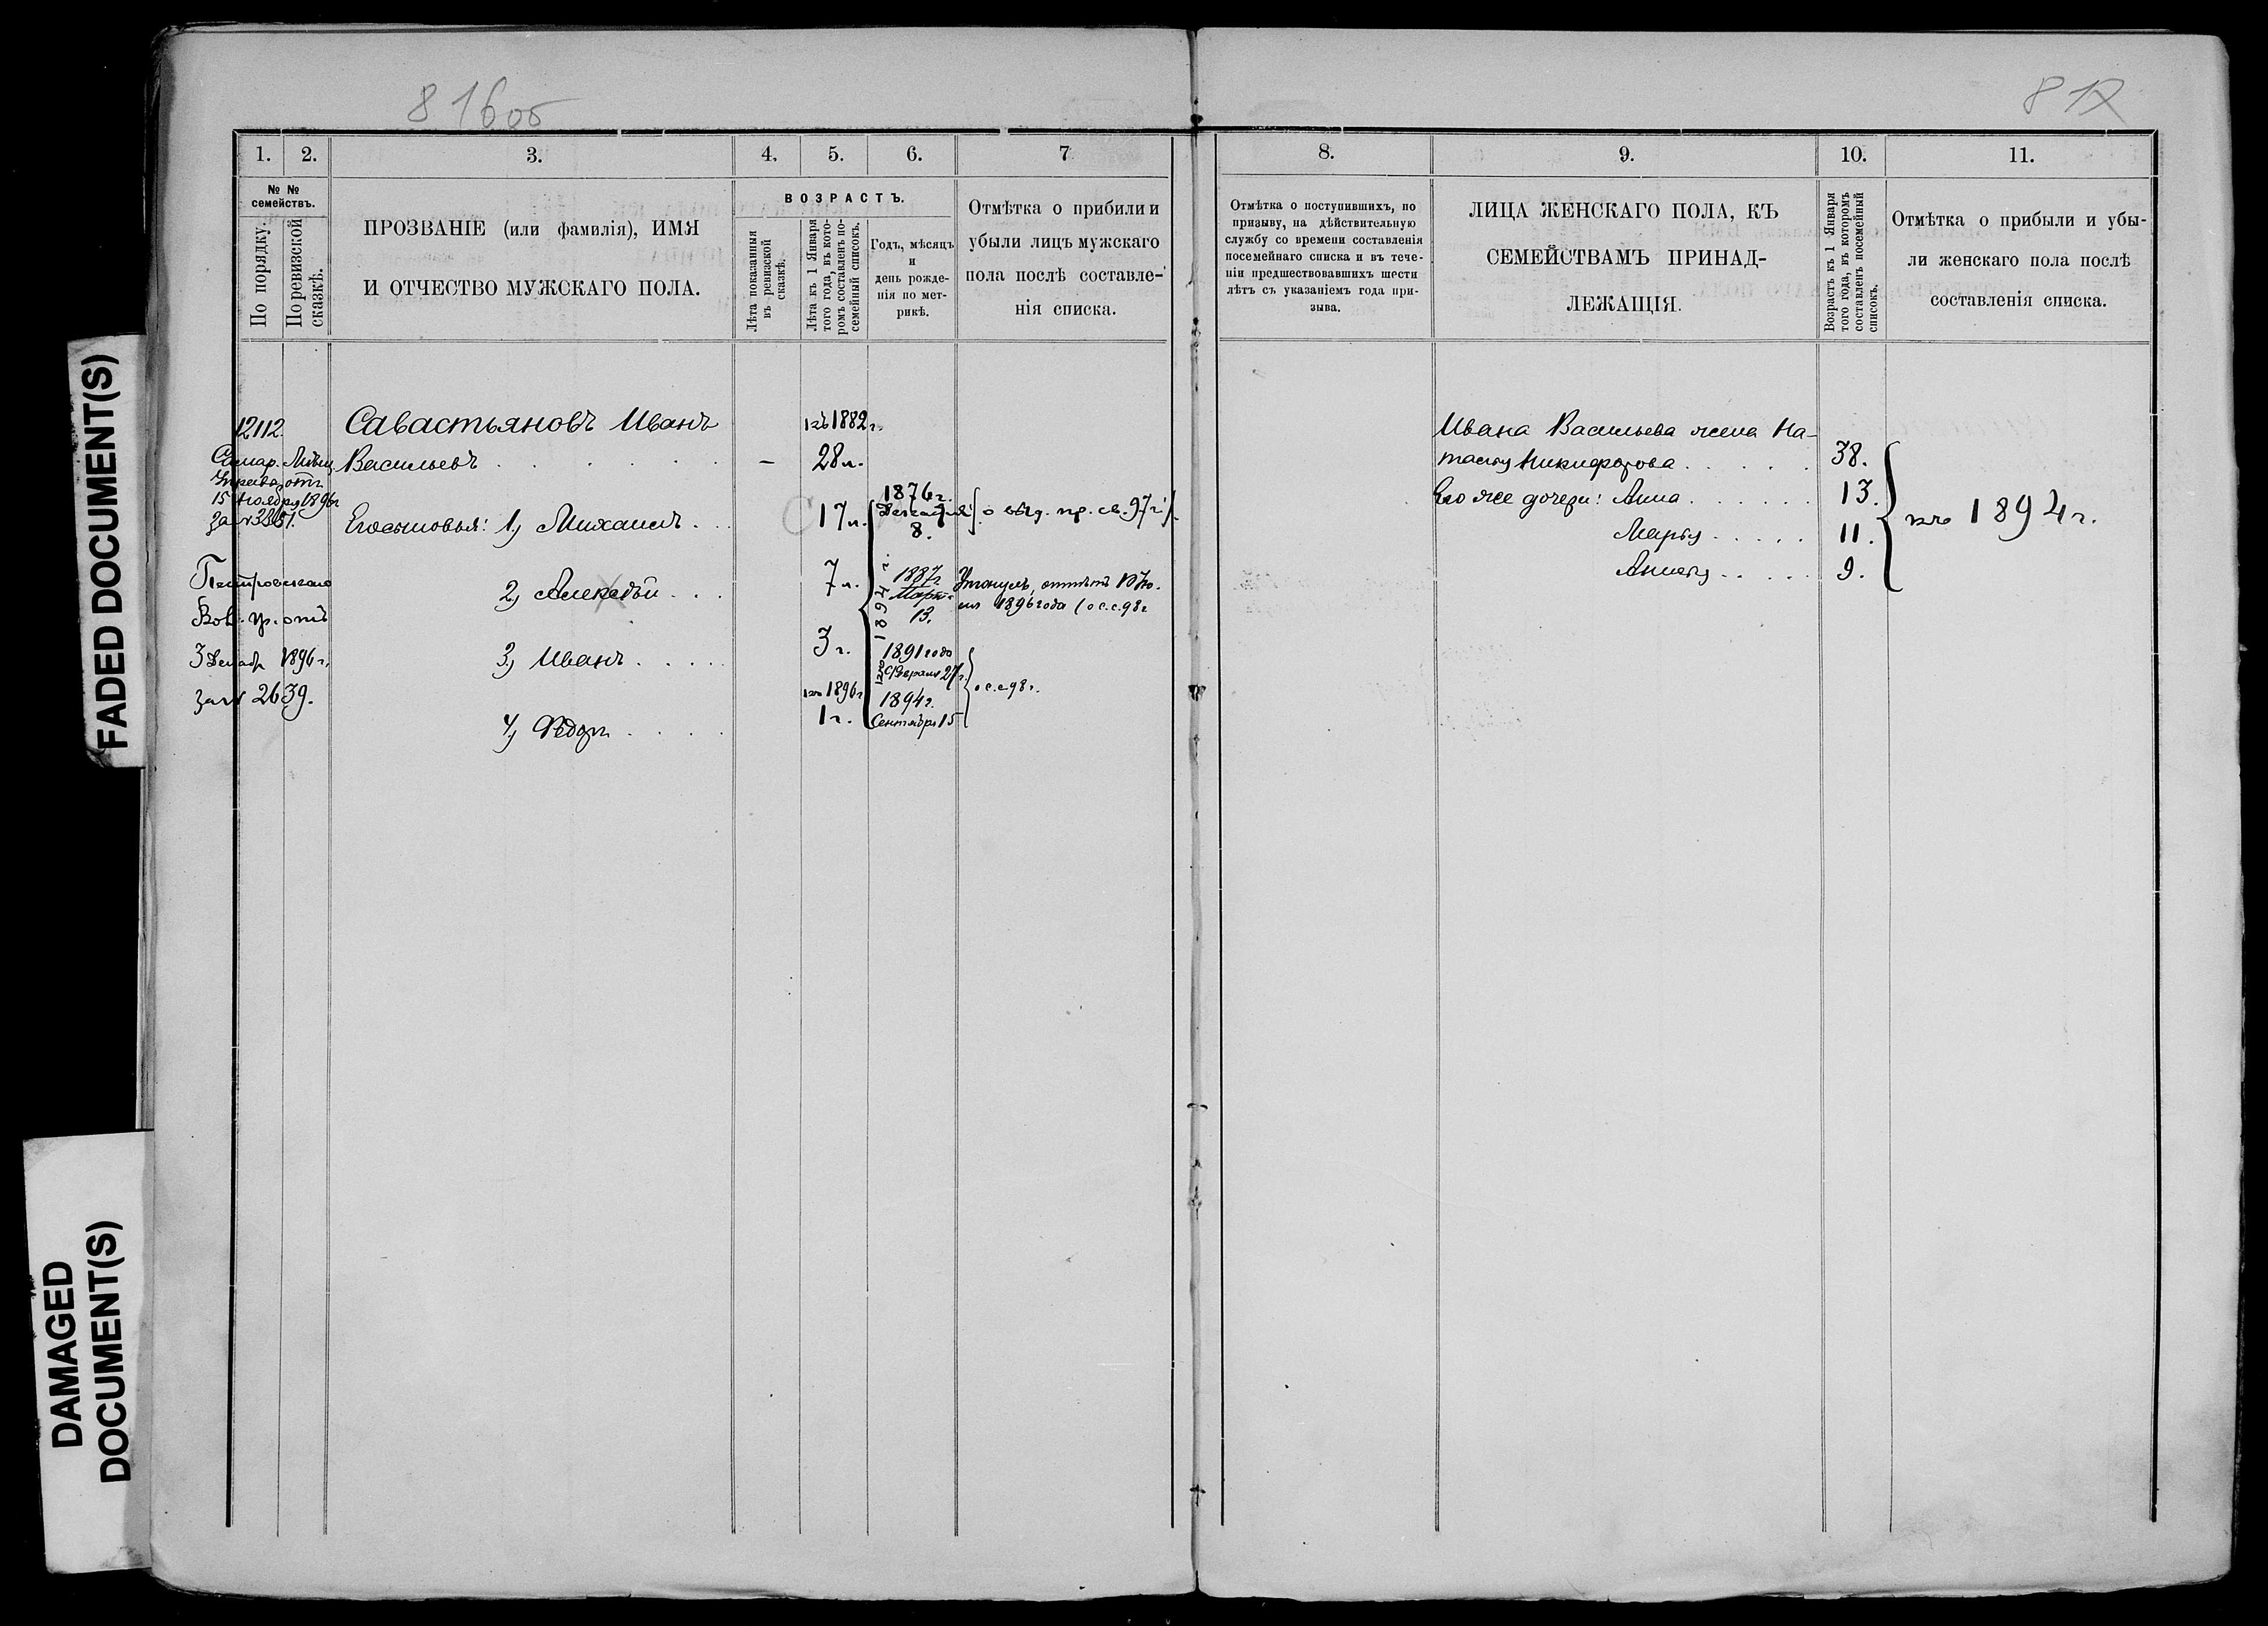 816об
817
1.
2.
3.
4.
5.
6.
7
№ №
семействъ.
По порядку.
По ревизской
сказкѣ.
ПРОЗВАНІЕ (или фамилія), ИМЯ
И ОТЧЕСТВО МУЖСКАГО ПОЛА.
ВОЗРАСТЪ.
Лѣта показанныя
въ ревизской
сказкѣ.
Лѣта къ 1 Января
того года, въ кото-
ромъ составленъ по-
семейный списокъ.
Годъ, мѣсяцъ
и
день рожде-
нія по мет-
рикѣ.
Отмѣтка о прибыли и
убыли лицъ мужскаго
пола послѣ составле-
нія списка.
12112.
Самар. Мѣщ.
Управ. отъ
15 Ноября 1896г
за №
Петровскаго
отъ
3 Декабр 1896 г.
за № 2639.
Савастьяновъ Иванъ
Васильевъ . . . . .
–
къ 1882 г.
28 л.
Его сыновья: 1, Михаилъ . .
17 л.
1876 г.
Декабря
8.
о выд. пр. св. 97 г.
2, Алексѣй . . .
7 л.
къ 1894 г.
1887 г
Март
13.
Утонулъ, отпѣтъ 10 Ію-
1896 года (о с.с. 98 г
3, Иванъ . . . . .
3 г.
1891 года
Февраля 27
4, Ѳедоръ . . . .
къ 1896 г
1 г.
1894 г.
Сентября 15
о с.с. 98 г.
8.
9.
10.
11.
Отмѣтка о поступившихъ, по
призыву, на дѣйствительную
службу со времени составленія
посемейнаго списка и въ тече-
ніи предшествовавшихъ шести
лѣтъ съ указаніемъ года при-
зыва.
ЛИЦА ЖЕНСКАГО ПОЛА, КЪ
СЕМЕЙСТВАМЪ ПРИНАД-
ЛЕЖАЩІЯ.
Возрастъ къ 1 Января
того года, въ которомъ
составленъ посемейный
списокъ.
Отмѣтка о прибыли и убы-
ли женскаго пола послѣ
составленія списка.
Ивана Васильева жена На-
талья Никифорова . . . . . 38.
Его же дочери: Анна . . . . . . 13.
Марья . . . . . 11.
. . . . . 9.
къ 1894 г.
FADED DOCUMENT(S)
DAMAGED
DOCUMENT(S)